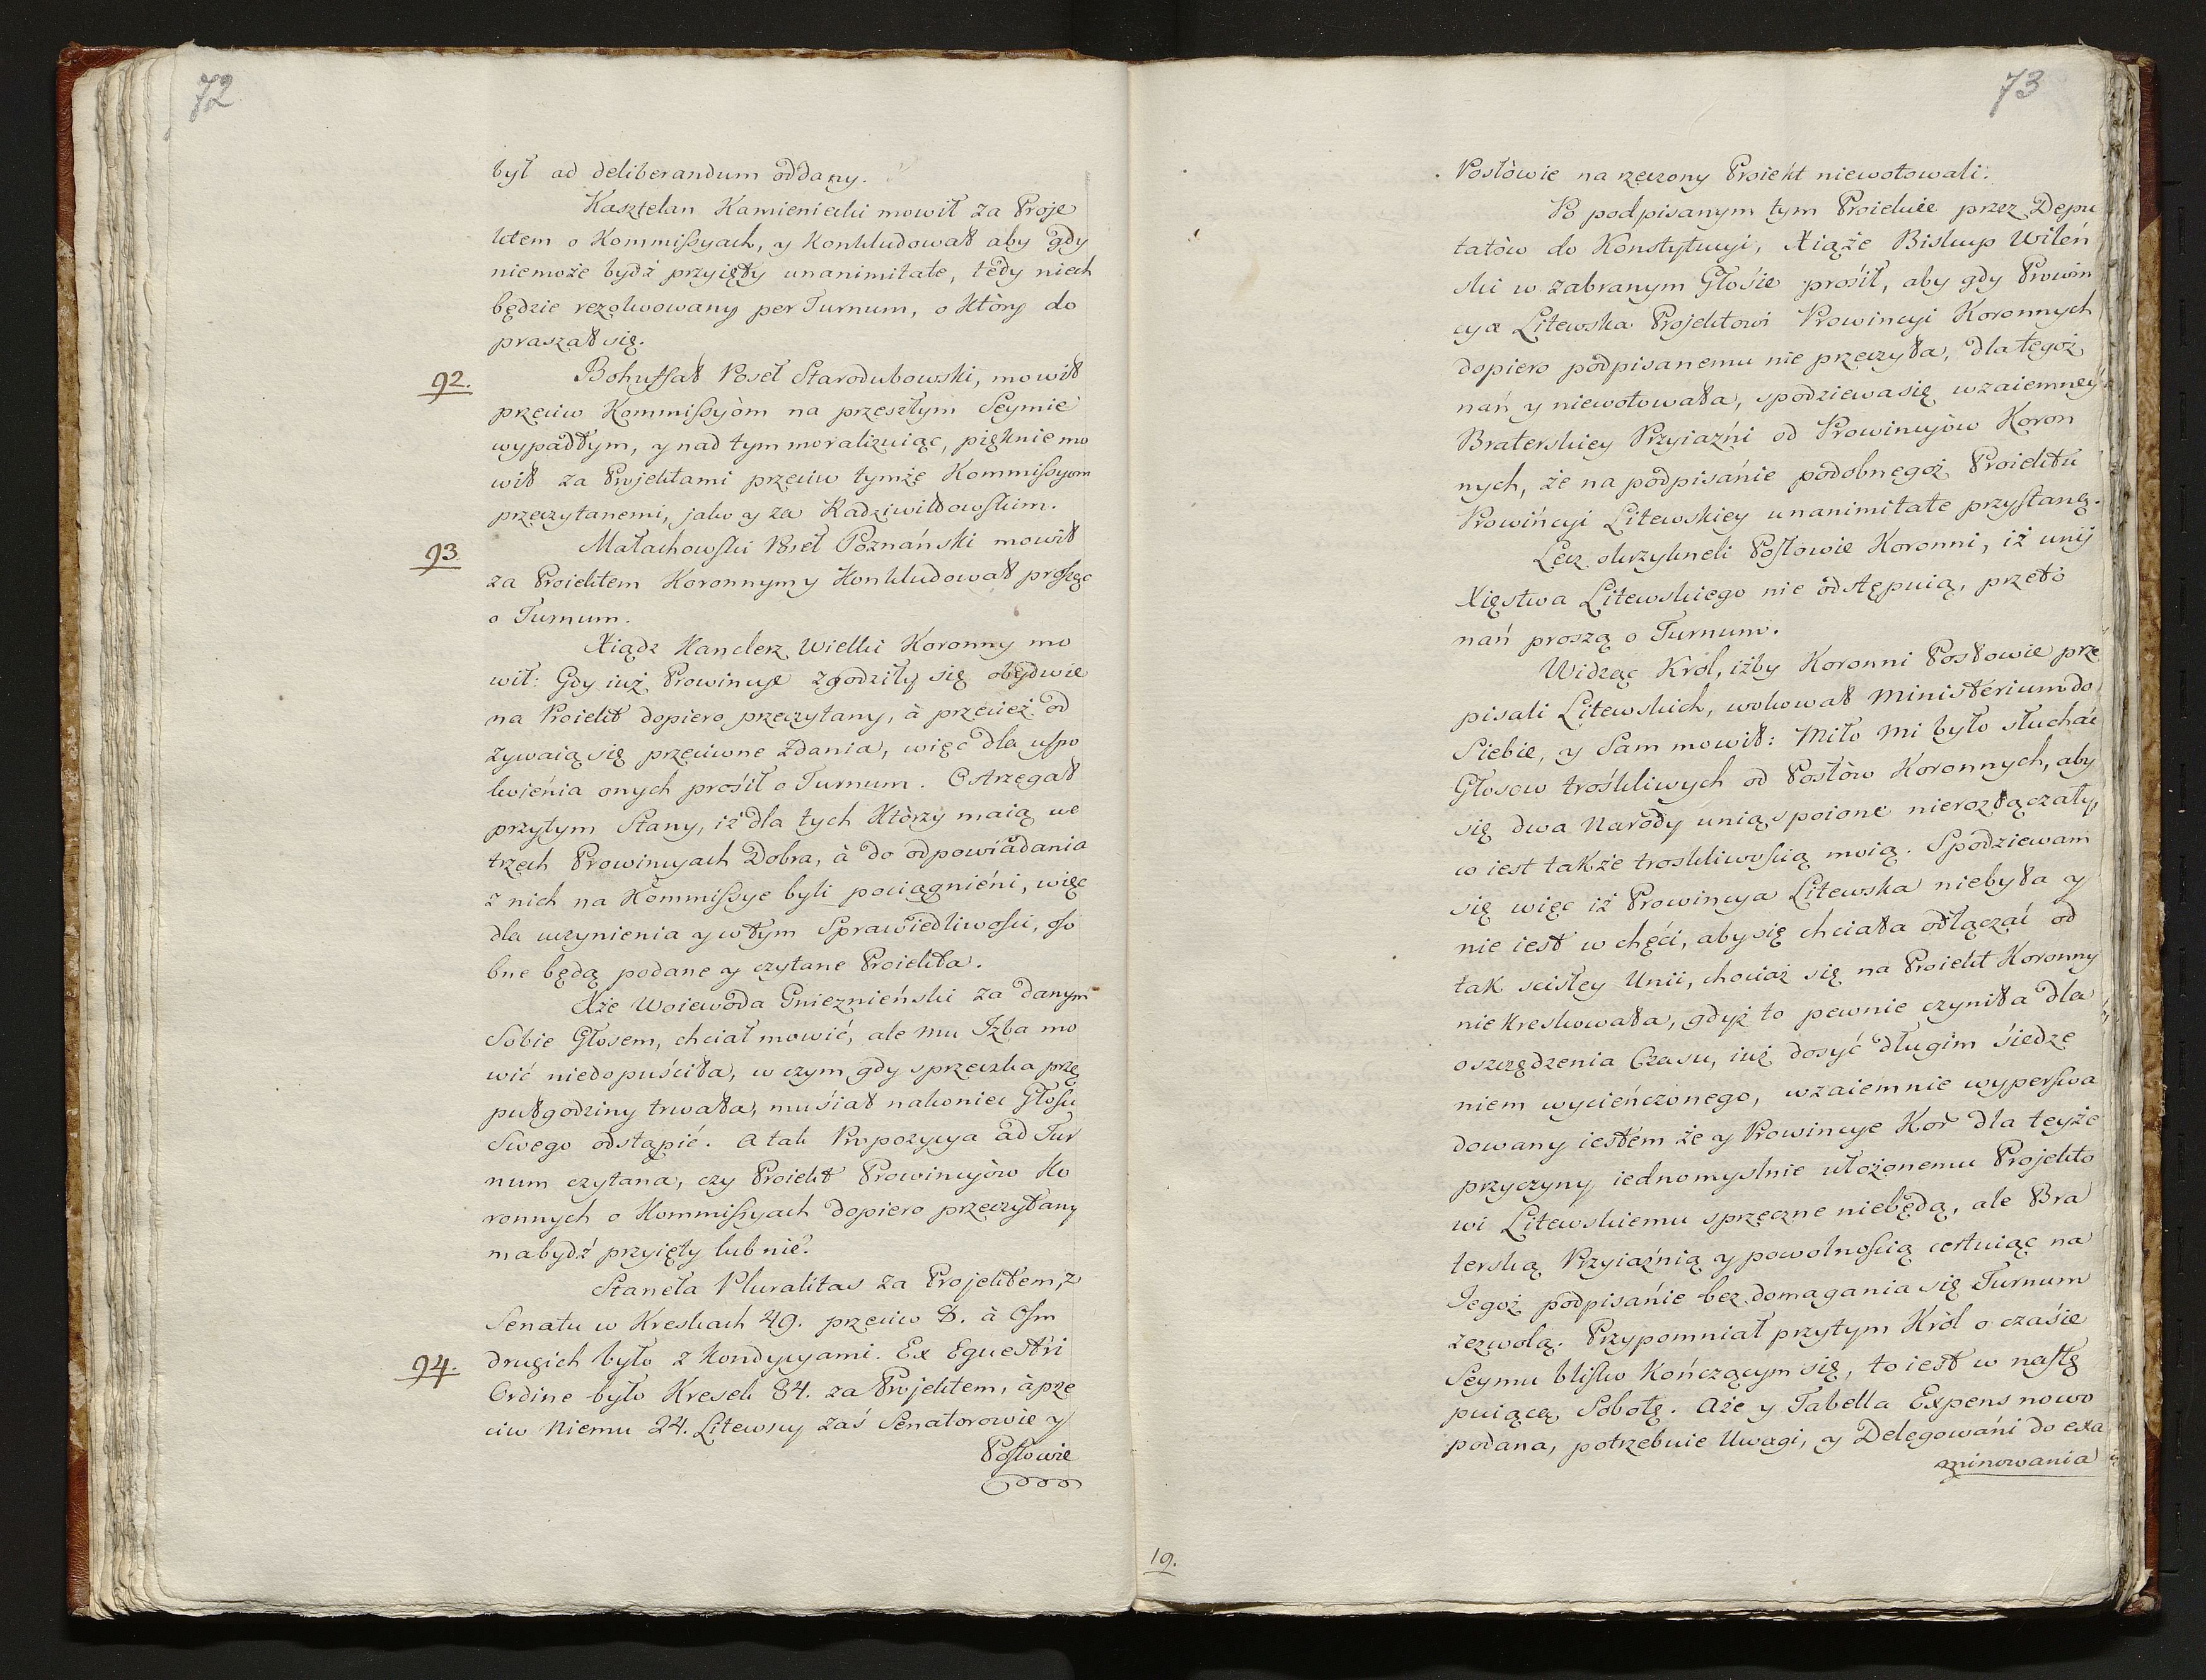 72
był ad deliberandum oddany.
Kasztelan Kamieniecki mowił za Proje
ktem o Kommissyach, y Konkludował aby gdy
niemoże bydź przyięty unanimitate, tedy niech
będzie rezolwowany per Turnum, o który do
praszał się.
92.
Bohuszał Poseł Starodubowski, mowił
przeciw Kommissyòm na przeszłym Seymie
wypadłym, y nad tym moralizuiąc, pięknie mo
wił za Projektami przeciw tymże Kommissyom
przeczytanemi, jako y za Radziwiłdowskim.
93
Małachowski Poseł Poznański mowił
za Proiektem Koronnym y Konkludował prosząc
o Turnum.
Xiądz Kanclerz Wielki Koronny mo
wił: Gdy iuż Prowincye zgodziły się obydwie
na Proiekt dopiero przeczytany, à przecież od
zywaią się przeciwne Zdania, więc dla uspo
koienia onych prośił o Turnum. Ostrzegał
przytym Stany, iż dla tych Którzy maią we
trzech Prowincyach Dobra, à do odpowiadania
z nich na Kommissye byli pociągnieni, więc
dla uczynienia y w tym Sprawiedliwosci, oso
bne będą podane y czytane Proiekta.
Xże Woiewoda Gnieznieński za danym
Sobie Głosem, chciał mowić, ale mu Izba mo
wić niedopuściła, w czym gdy sprzeczka prze
pułgodziny trwała, muśiał nakoniec Głosu
Swego odstąpić. A tak Propozycya ad Tur
num czytana, czy Proiekt Prowincyòw Ko
ronnych o Kommissyach dopiero przeczytany
ma bydź przyięty lub nie?
Staneła Pluralitas za Projektem, z
Senatu w Kreskach 49. przeciw 8. à Osm
94.
drugich było z Kondycyami. Ex Equestri
Ordine było Kresek 84. za Projektem, à prze
ciw Niemu 24. Litewscy zaś Senatorowie y
Posłowie
73
Posłòwie na rzeczony Proiekt niewotowali.
Po podpisanym tym Proiekcie przez Depu
tatòw do Konstytucyi, Xiąże Biskup Wileń
ski w zabranym Głośie prośił, aby gdy Prowin
cya Litewska Projektowi Prowincyi Koronnych
dopiero podpisanemu nie przeczyła, dla tegoż
nań y niewotowała, spodziewa się wzaiemney
Braterskiey Przyiaźni od Prowincyòw Koron
nych, że na podpisánie podobnegoż Proiektu
Prowińcyi Litewskiey unanimitate przystaną.
Lecz okrzykneli Posłowie Koronni, iż unij
Xięstwa Litewskiego nie odstępuią, przeto
nań proszą o Turnum.
Widząc Król, iżby Koronni Posłowie prze
pisali Litewskich, wokował Ministerium do
Siebie, y Sam mowił: Miło mi było słuchać
Głosow troskliwych od Posłòw Koronnych, aby
się dwa Narody unią spoione nierozłączały,
co iest także troskliwoscią moią. Spodziewam
się więc iż Prowincya Litewska niebyła y
nie iest w chęci, aby się chciała odłączać od
tak scisłey Unii, chociaż się na Proiekt Koronny
nie kreskowała, gdyż to pewnie czyniła dla
oszczędzenia Czasu, iuż dosyć długim śiedze
niem wycieńczonego, wzaiemnie wyperswa
dowany iestem że y Prowincye Kor dla teyże
przyczyny iednomyslnie ułożonemu Projekto
wi Litewskiemu sprzeczne niebędą, ale Bra
terską Przyiaźnią y powolnoscią certuiąc na
Jegoż podpisánie bez domagania się Turnum
zezwolą. Przypomniał przytym Król o czaśie
Seymu blisko Kończącym się, to iest w nastę
puiącą Sobotę. Aże y Tabella Expens nowo
podana, potrzebuie Uwagi, y Delegowáni do exa
minowania
19.